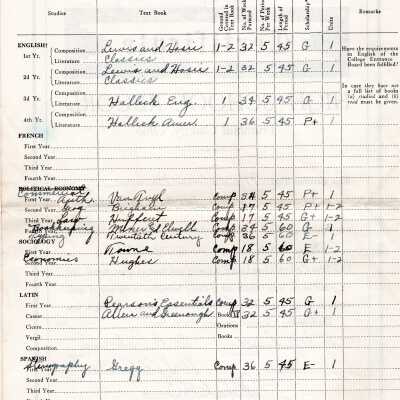 Studies Text Book Ground Covered in Text Book No. of Weeks Pursued No. of Periods Per Week Length of Period Scholarship* Units Remarks
ENGLISH
1st Yr. Composition Lewis and Hosic 1-2 32 5 45 G 1
Literature Classics
2d Yr. Composition Lewis and Hosic 1-2 32 5 45 G 1
Literature Classics
3d Yr. Composition Halleck Eng. 1 34 5 45 G 1
Literature
4th Yr. Composition Halleck Amer. 1 36 5 45 P+ 1
Literature
Have the requirements in English of the College Entrance Board been fulfilled?
In case they have not a full list of books
FRENCH
First Year
Second Year
Third Year
Fourth Year
POLITICAL ECONOMY
Commercial
First Year Arith. Van Tuyl Comp 34 5 45 P+ 1
Geog Comp 17 5 45 P+ 1-2
Law Huffcut Comp 17 5 45 G+ 1-2
Bookkeeping Comp 34 5 60 G 1
Typing Twentieth Century Comp 36 5 60 E- 1
SOCIOLOGY
Towne Comp 18 5 60 E 1-2
Economics Hughes Comp 18 5 60 G+ 1-2
Third Year
Fourth Year
LATIN
First Year Pearson's Essentials Comp 32 5 45 G 1
Caesar Allen and Greenough Books 32 5 45 G+ 1
Cicero Orations
Vergil Books
Composition
SPANISH
Stenography Gregg Comp 36 5 45 E- 1
Second Year
Third Year
Fourth Year